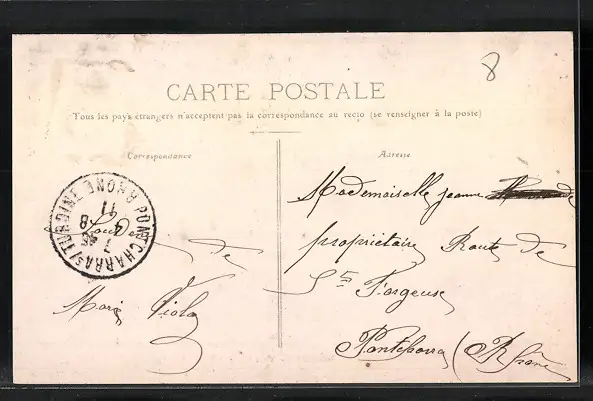 8
CARTE POSTALE
Tous les pays étrangers n'acceptent pas la correspondance au recto (se renseigner à la poste)
Correspondance
Adresse
PONTCHARRA S/ TURDINE RHONE
Mademoiselle Jeanne
propriétaire Route de
St Forgeux
Pontcharra (Rhône
de
Marie Viola